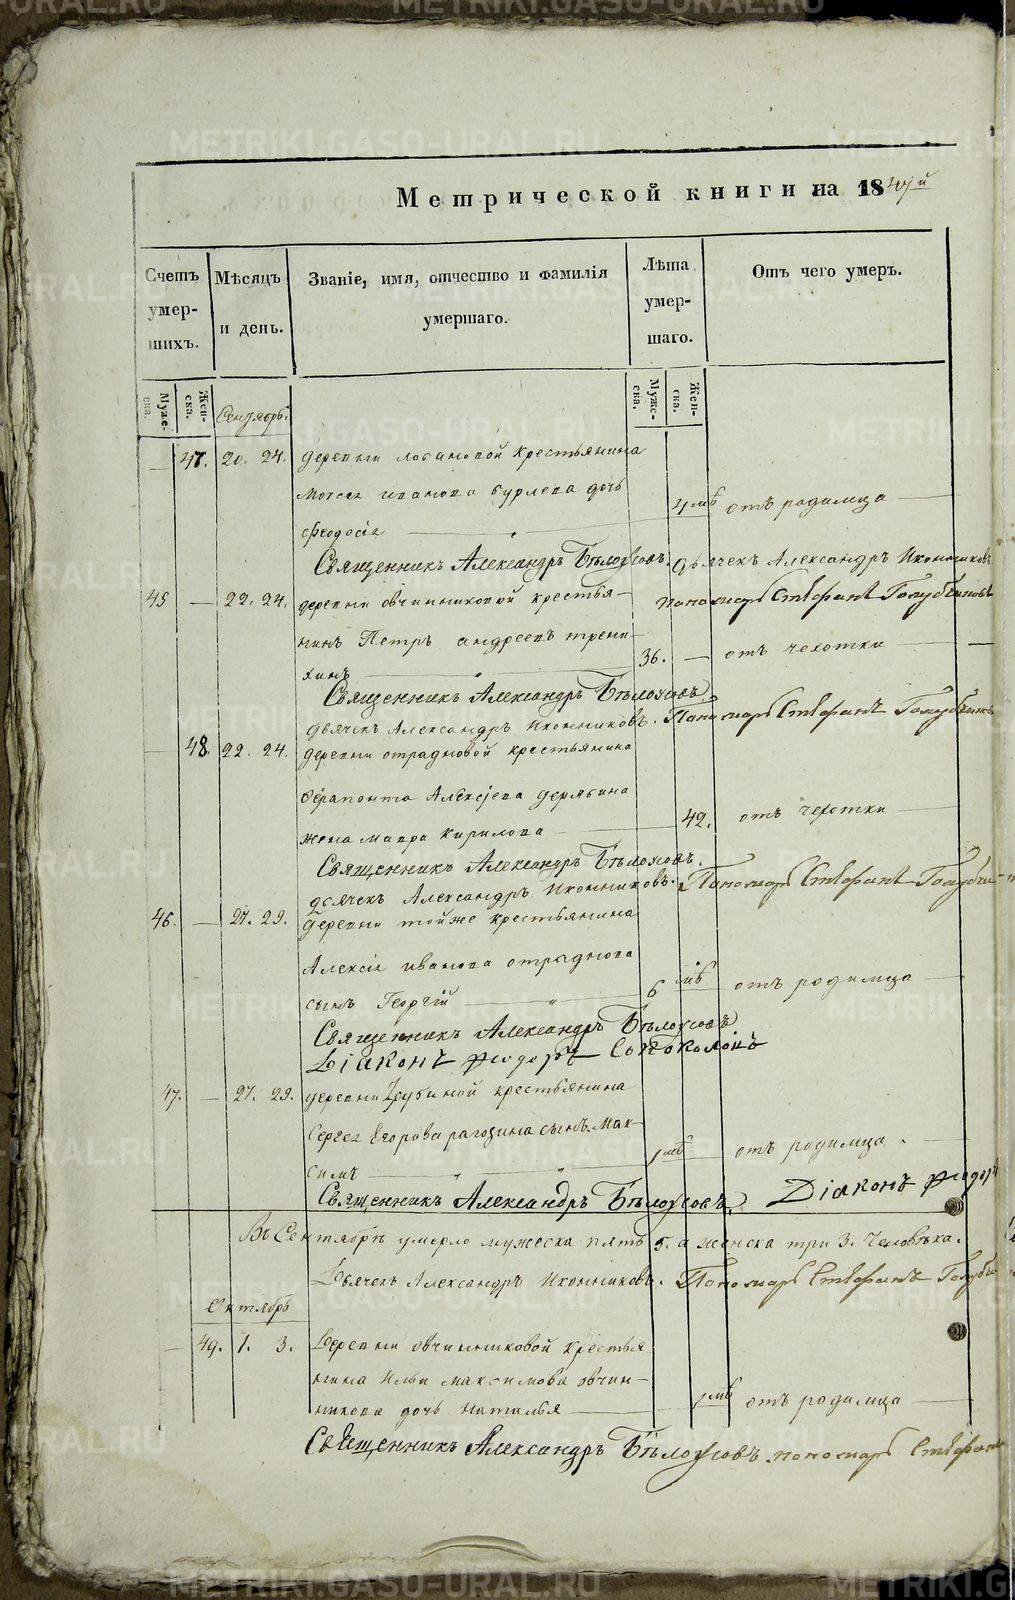 Метрической книги на 184й
Счетъ умершихъ.
Мѣсяцъ и день.
Званіе, имя, отчество и фамилія умершаго.
Лѣта умершаго.
Отъ чего умеръ.
Муже-ска.
Жен-ска.
Муже-ска.
Жен-ска.
Сентябрь.
— 47. 20. 24. деревни лобановой крестьянина
Моисея иванова бурлева дочь
4 мѣ отъ родимца
Феодосія
Священникъ Александръ Бѣлоусовъ. Дьячекъ Александръ Иконниковъ
45 — 22. 24. деревни овчинниковой крестья-
пономарь Стефанъ Голубчиковъ
нинъ Петръ андреевъ трени-
36. — отъ чехотки
хинъ
Священникъ Александръ Бѣлоусовъ
дьячекъ Александръ Иконниковъ. Пономарь Стефанъ Голубчиковъ
— 48. 22. 24. деревни отрадновой крестьянина
Ферапонта Алексѣева дерябина
жена мавра кирилова
42. отъ чехотки
Священникъ Александръ Бѣлоусовъ.
дьячекъ Александръ Иконниковъ. Пономарь Стефанъ Голубчи
46. — 27. 29. деревни тойже крестьянина
Алексія иванова отраднова
сынъ Георгій
6 мѣ отъ родимца
Священникъ Александръ Бѣлоусовъ
Діаконъ Феодоръ
47. — 27. 29. деревни крестьянина
Сергея Егорова рагозина сынъ Мак-
симъ
1 мѣ отъ родимца.
Священникъ Александръ Бѣлоусовъ. Діаконъ Феодоръ
Въ Сентябрѣ умерло мужеска пять 5. а женска три 3. Человѣка.
Дьячекъ Александръ Иконниковъ. Пономарь Стефанъ Голубчи
Октябрь
— 49. 1. 3. Деревни овчинниковой крестья
нина Ильи максимова овчин-
никова дочь наталья
1 мѣ отъ родимца
Священникъ Александръ Бѣлоусовъ пономарь Стефанъ
METRIKI.GASO-URAL.RU